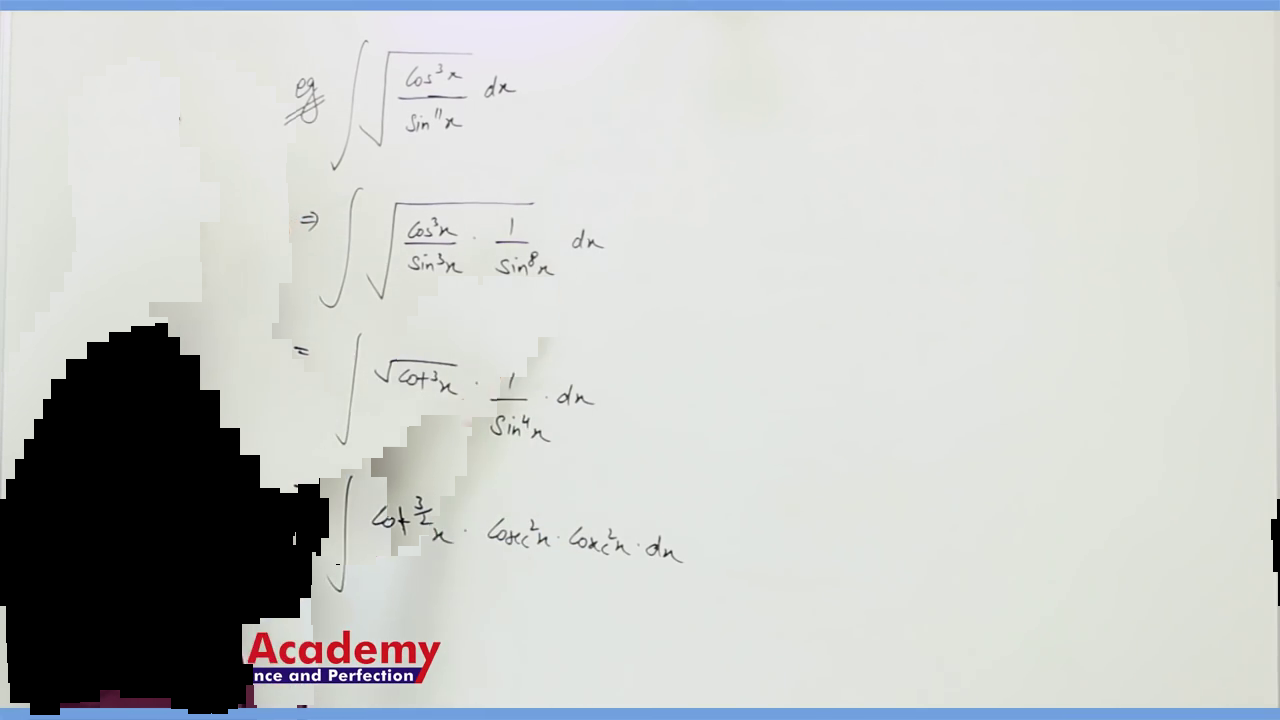 eg ∫ √(cos³x / sin¹¹x) dx
⇒ ∫ √(cos³x / sin³x · 1 / sin⁸x) dx
= ∫ √cot³x · 1 / sin⁴x · dx
∫ cot^(3/2) x · cosec²x · cosec²x · dx
Academy
nce and Perfection